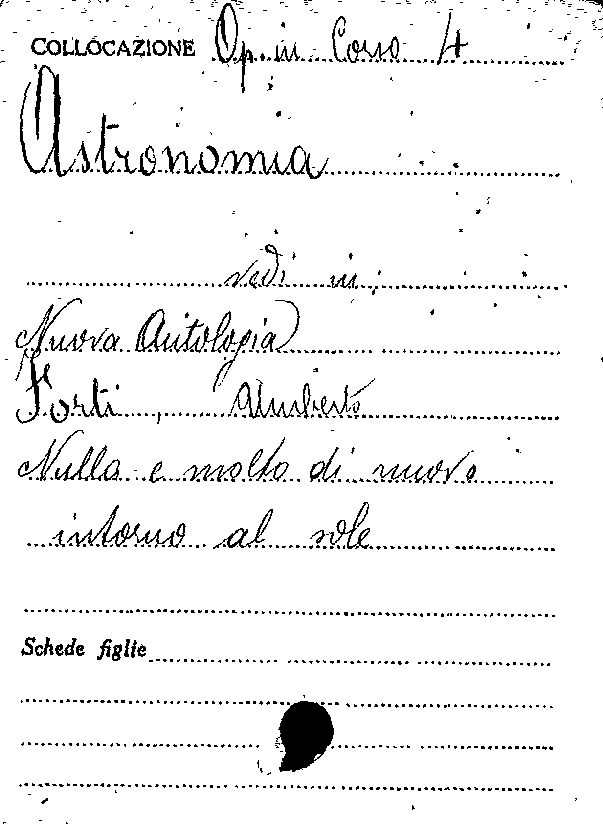 COLLOCAZIONE Op. in Corso 4
Astronomia
vedi in
Nuova Antologia
Forti, Umberto
Nulla e molto di nuovo
intorno al sole
Schede figlie